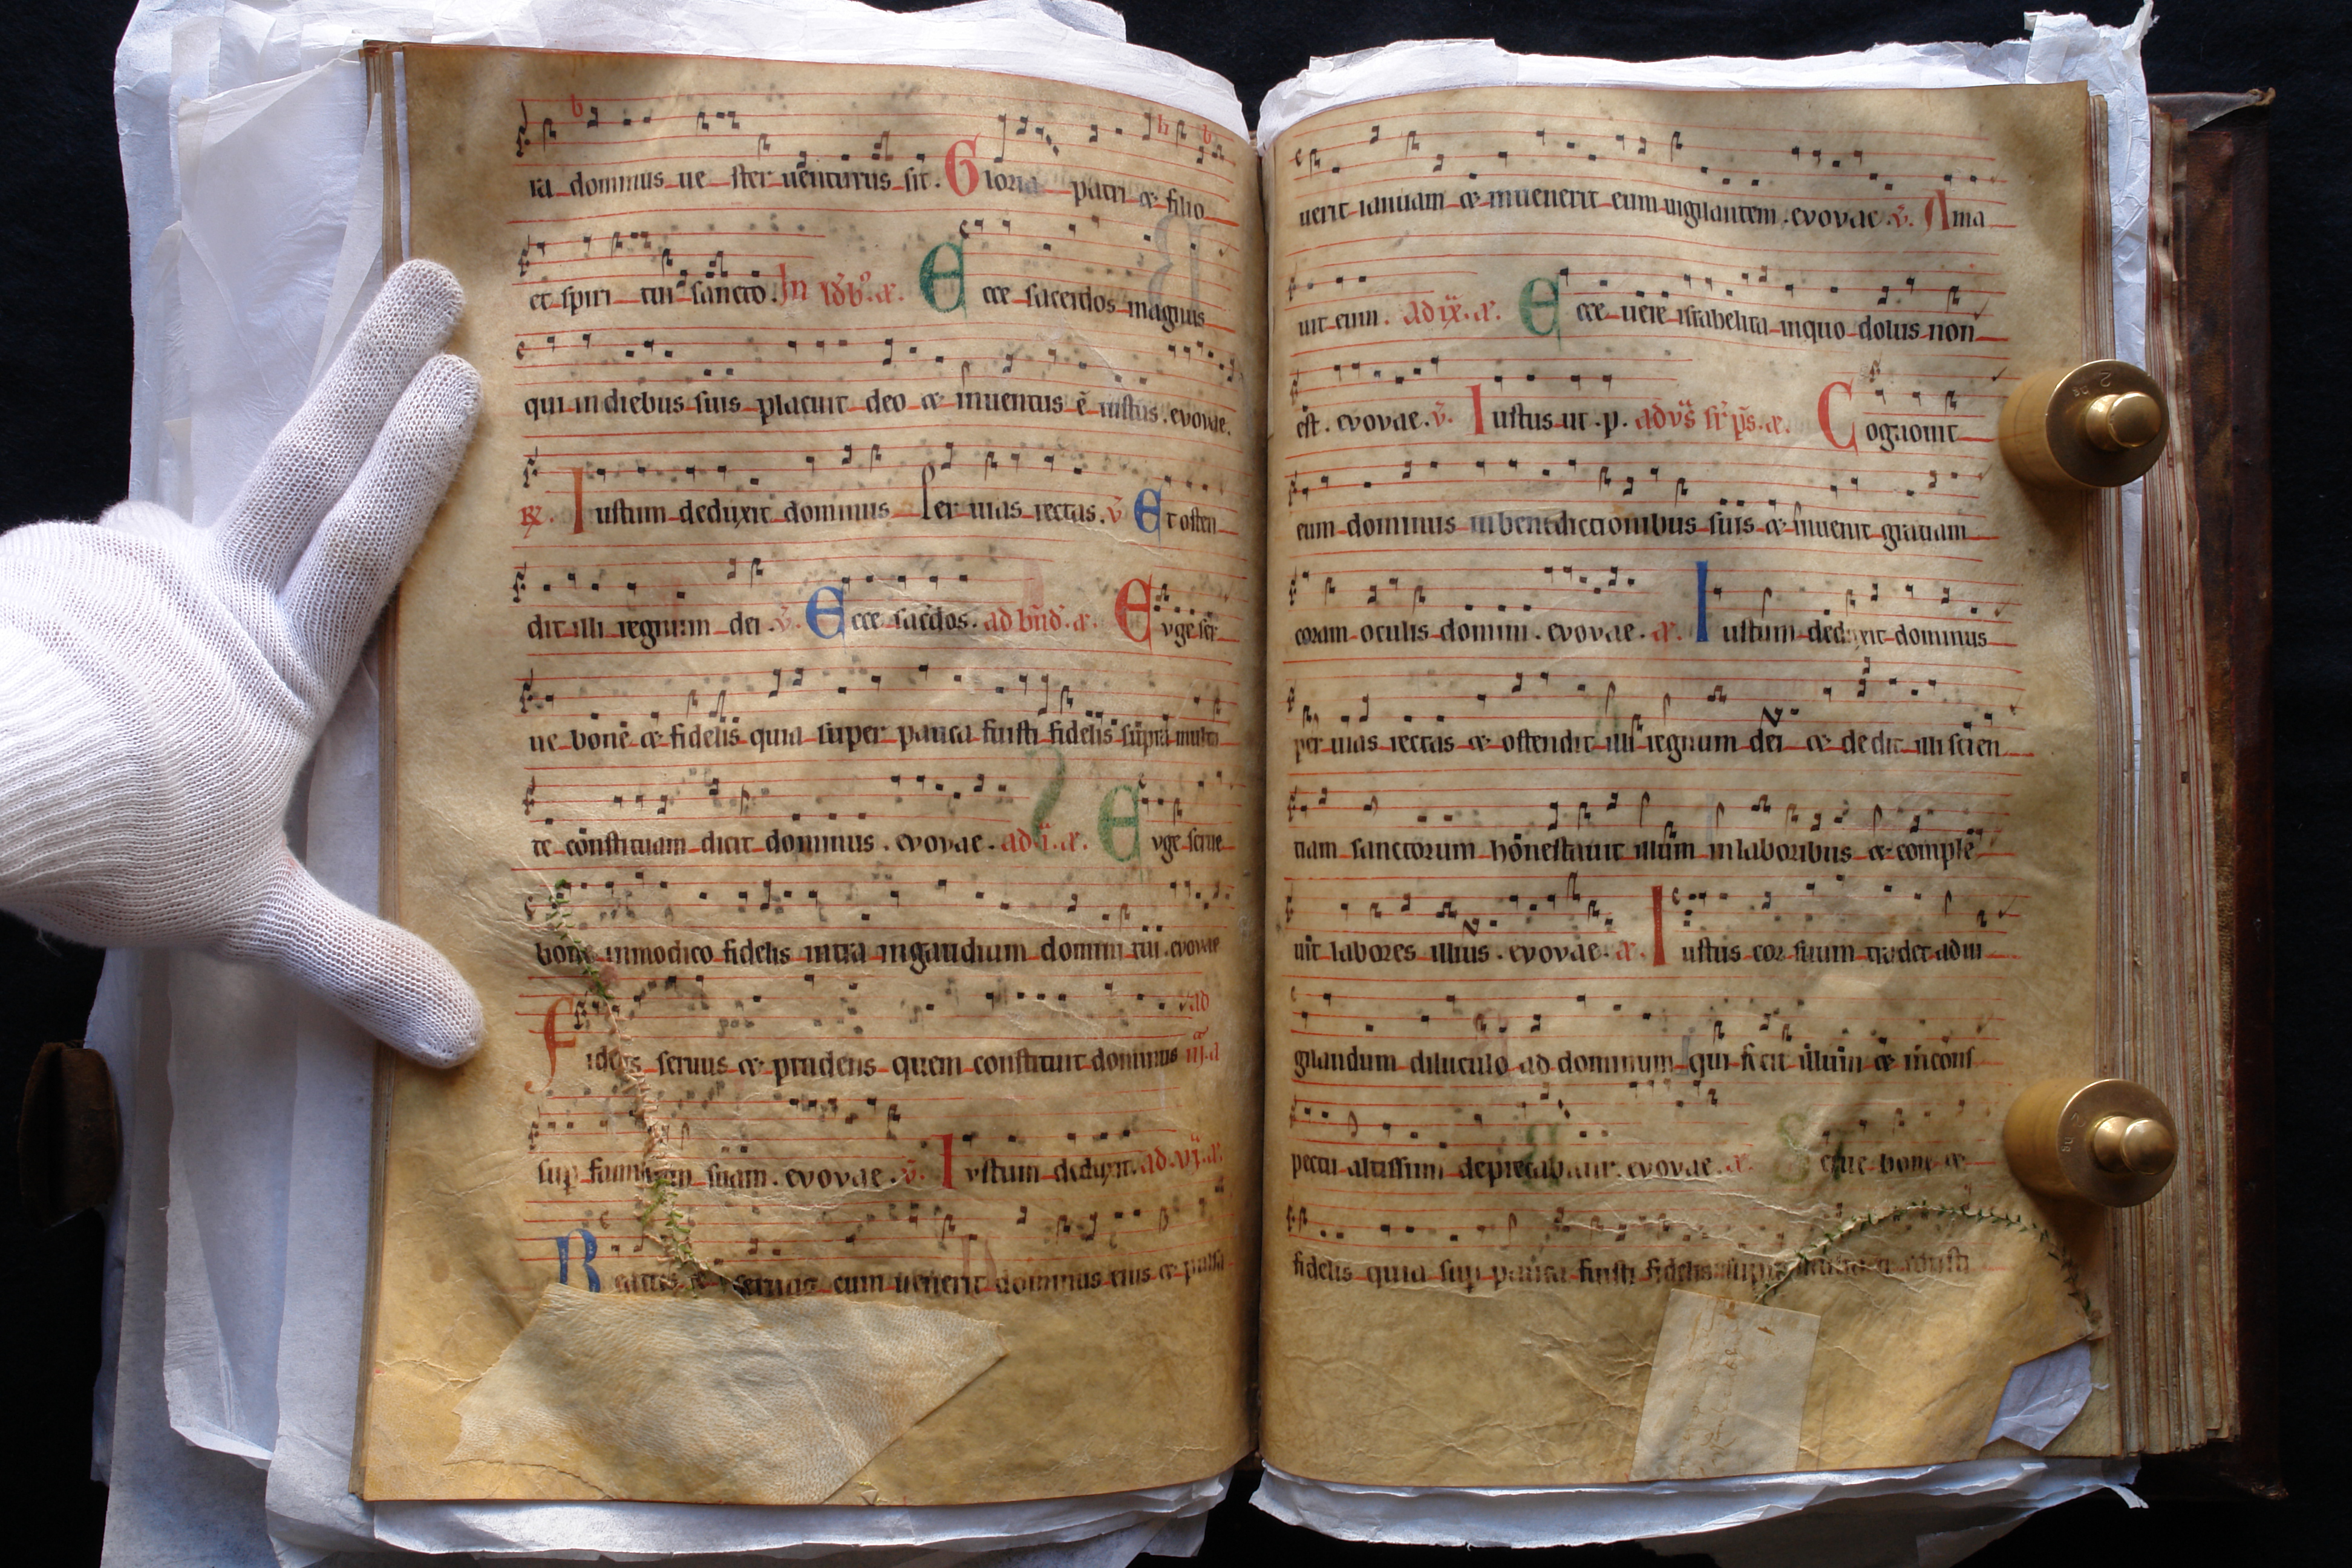 ra dominus ue ster uenturus sit. Gloria patri & filio
et spiri tui sancto. In ... a. Ecce sacerdos magnus
qui in diebus suis placuit deo & inuentus ē iustus. evovae.
R. Iustum deduxit dominus Per uias rectas. v̄ Et osten
dit illi regnum dei. v̄. Ecce sac̄dos. ad bn̄d. a. Euge ser
ue bone & fidelis quia super pauca fuisti fidelis supra multa
te constituam dicit dominus. evovae. ad i. a. Evge serue
bone inmodico fidelis intra ingaudium domini tui. evovae
Fidelis seruus & prudens quem constituit dominus
sup familiam suam. evovae. v̄. Iustum deduxit. ad. vi. a.
Beatus seruus cum uenerit dominus eius & pulsa
uerit ianuam & inuenerit eum uigilantem. evovae. v̄. Ama
uit eum. ad ix. a. Ecce uere israhelita inquo dolus non
est. evovae. v̄. Iustus ut. p. ad vs̄ ... ps̄. a. Cognouit
eum dominus inbenedictionibus suis & inuenit gratiam
coram oculis domini. evovae. a. Iustum deduxit dominus
per uias rectas & ostendit illi regnum dei & dedit illi scien
tiam sanctorum honestauit illum inlaboribus & comple
uit labores illius. evovae. a. Iustus cor suum tradet ad ui
gilandum diluculo ad dominum qui fecit illum & incons
pectu altissimi deprecabitur. evovae. a. Serue bone &
fidelis quia sup pauca fuisti fidelis supra multa